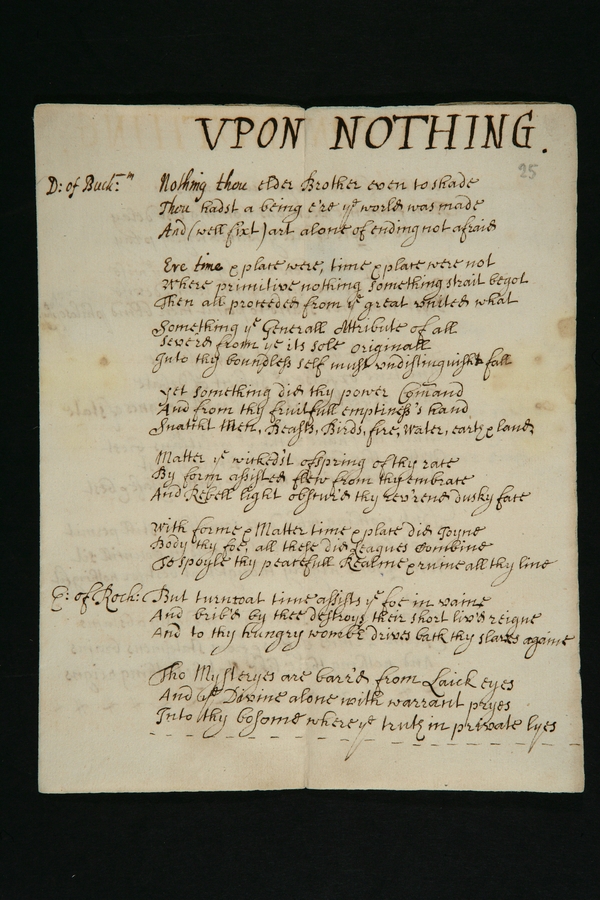 VPON NOTHING.
25
D: of Buck:m
Nothing thou elder Brother even to shade
Thou hadst a being e're ye world was made
And (well fixt) art alone of ending not afraid
Ere time & place were, time & place were not
Where primitive nothing something strait begot
Then all proceeded from ye great vnited what
Something ye Generall Attribute of all
Severd from ye its sole originall
Into thy boundless self must vndistinguisht fall
yet something did thy power Comand
And from thy fruitfull emptiness's hand
Snatcht Men, Beasts, Birds, fire, water, earth & land
Matter ye wickedst ofspring of thy race
By form assisted flew from thy embrace
And Rebell light obscur'd thy rev'rend dusky face
With forme & Matter time & place did Joyne
Body thy foe, all these did Leagues Combine
To spoyle thy peacefull Realme & ruine all thy line
E: of Roch:
But turncoat time assists ye foe in vaine
And brib'd by thee destroys their short liv'd reigne
And to thy hungry wombe drives back thy slaves againe
Tho Mysteryes are barr'd from Laick eyes
And ye Divine alone with warrant pryes
Into thy bosome where ye truth in private lyes